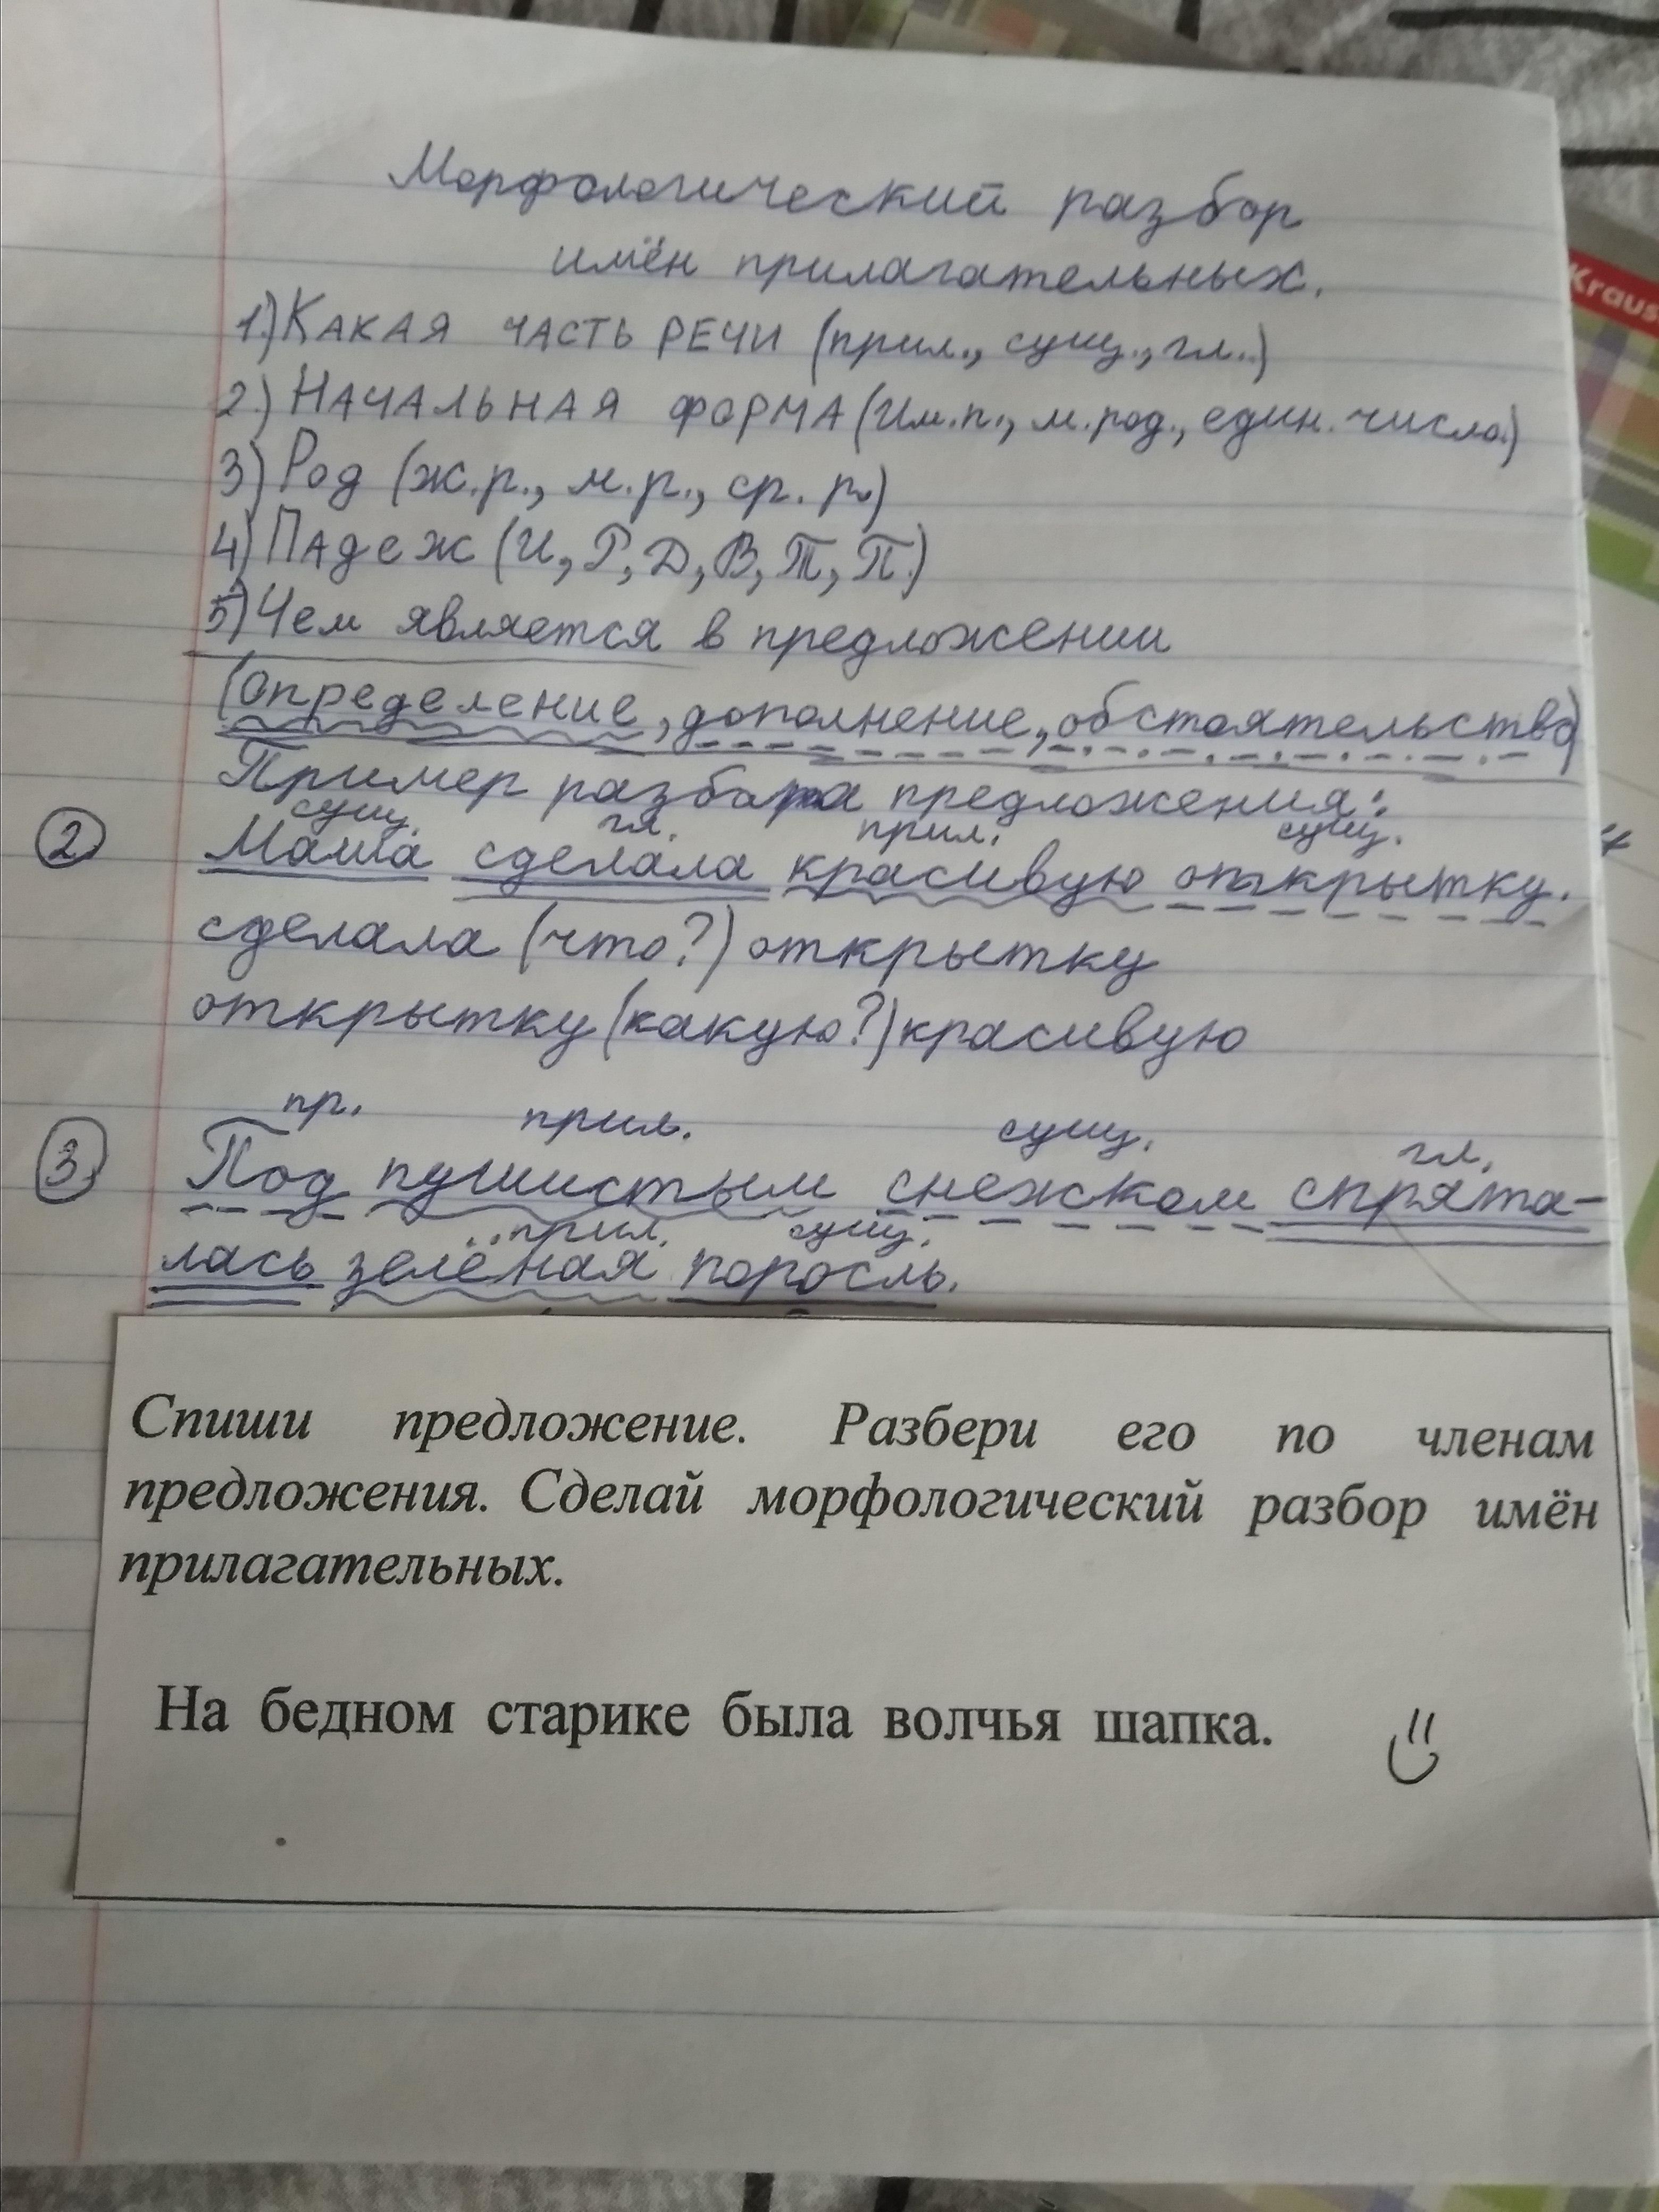 Морфологический разбор
имён прилагательных.
1.) КАКАЯ ЧАСТЬ РЕЧИ (прил., сущ., гл..)
2.) НАЧАЛЬНАЯ ФОРМА (Им.п., м.род., един. числа.)
3) Род (ж.р., м.р., ср. р.)
4) Падеж (И, Р, Д, В, Т, П.)
5) Чем является в предложении
(определение, дополнение, обстоятельство)
Пример разбора предложения:
сущ. гл. прил. сущ.
2 Маша сделала красивую открытку.
сделала (что?) открытку
открытку (какую?) красивую
пр. прил. сущ. гл.
3. Под пушистым снежком спрята-
прил. сущ.
лась зелёная поросль.
Спиши предложение. Разбери его по членам
предложения. Сделай морфологический разбор имён
прилагательных.
На бедном старике была волчья шапка.
Kraus